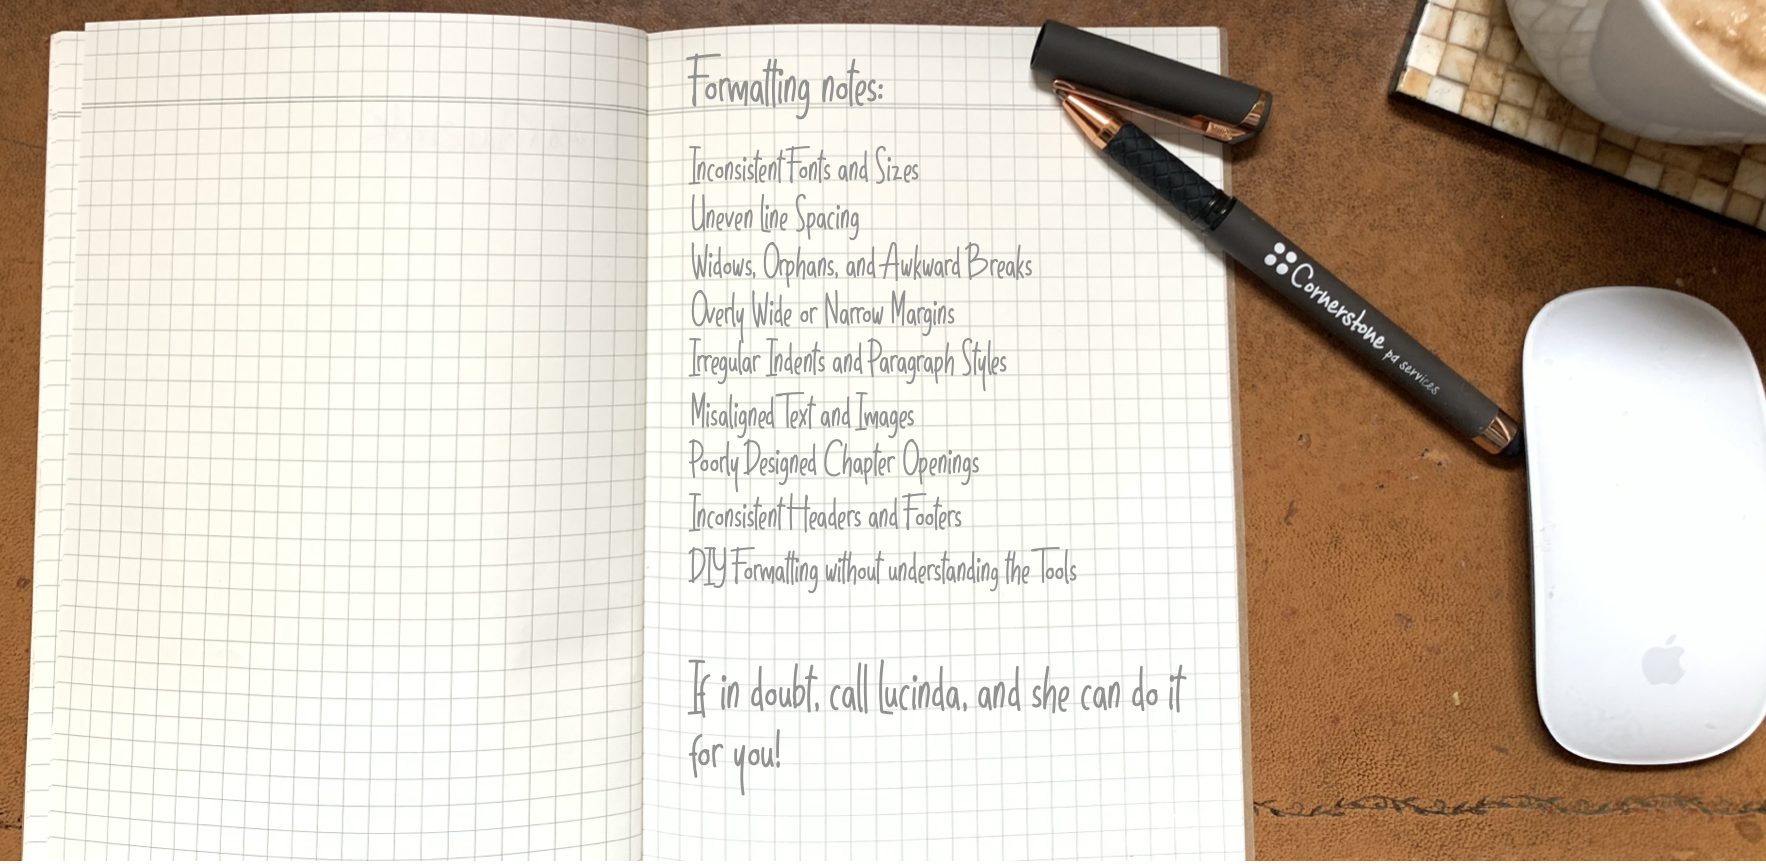 Formatting notes:
Inconsistent Fonts and Sizes
Uneven Line Spacing
Widows, Orphans, and Awkward Breaks
Overly Wide or Narrow Margins
Irregular Indents and Paragraph Styles
Misaligned Text and Images
Poorly Designed Chapter Openings
Inconsistent Headers and Footers
DIY Formatting without understanding the Tools
If in doubt, call Lucinda, and she can do it
for you!
Cornerstone
pa services